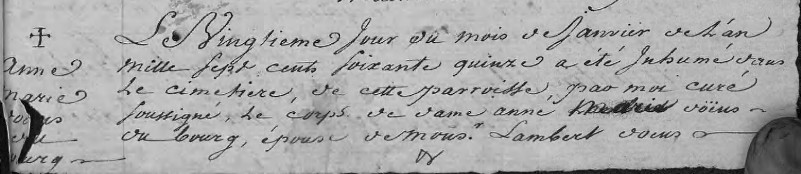 Anne
marie
Le Vingtieme Jour du mois de Janvier de L'an
mille sept cents soixante quinze a été Inhumé dans
Le cimetiere, de cette parroisse, par moi curé
soussigné, Le corps de dame anne
du bourg, épouse de mons.r Lambert